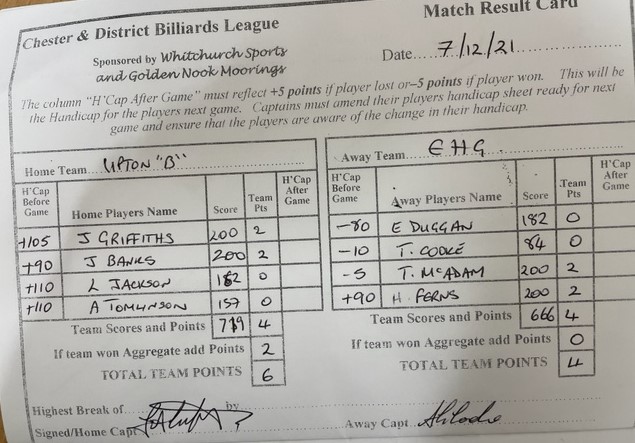 Chester & District Billiards League
Match Result Card
Sponsored by Whitchurch Sports
and Golden Nook Moorings
Date 7/12/21
The column "H'Cap After Game" must reflect +5 points if player lost or –5 points if player won. This will be
the Handicap for the players next game. Captains must amend their players handicap sheet ready for next
game and ensure that the players are aware of the change in their handicap.
Home Team UPTON "B"
H'Cap Before Game Home Players Name Score Team Pts H'Cap After Game
+105 J GRIFFITHS 200 2
+90 J BANKS 200 2
+110 L JACKSON 162 0
+110 A TOMLINSON 157 0
Team Scores and Points 719 4
If team won Aggregate add Points 2
TOTAL TEAM POINTS 6
Away Team EHG
H'Cap Before Game Away Players Name Score Team Pts H'Cap After Game
-80 E DUGGAN 182 0
-10 T. COOKE 84 0
-5 T. McADAM 200 2
+90 H. FERNS 200 2
Team Scores and Points 666 4
If team won Aggregate add Points 0
TOTAL TEAM POINTS 4
Highest Break of by
Signed/Home Capt
Away Capt